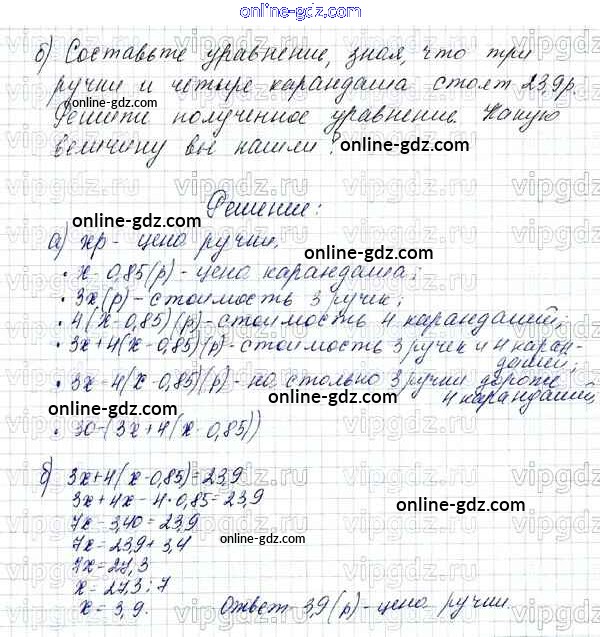 online-gdz.com
б) Составьте уравнение, зная, что три
ручки и четыре карандаша стоят 23,9 р.
online-gdz.com
Решити полученное уравнение. Какую
величину вы нашли?
online-gdz.com
Решение:
online-gdz.com
а) xр - цена ручки.
online-gdz.com
• x - 0,85 (р) - цена карандаша;
• 3x (р) - стоимость 3 ручек;
• 4(x - 0,85) (р) - стоимость 4 карандашей;
online-gdz.com
• 3x + 4(x - 0,85) (р) - стоимость 3 ручек и 4 каран-
дашей;
• 3x - 4(x - 0,85) (р) - на столько 3 ручки дороже
4 карандашей
online-gdz.com
• 30 - (3x + 4(x - 0,85))
online-gdz.com
б) 3x + 4(x - 0,85) = 23,9
3x + 4x - 4 • 0,85 = 23,9
online-gdz.com
7x - 3,40 = 23,9
7x = 23,9 + 3,4
online-gdz.com
7x = 27,3
x = 27,3 : 7
x = 3,9. Ответ 3,9 (р) - цена ручки.
online-gdz.com